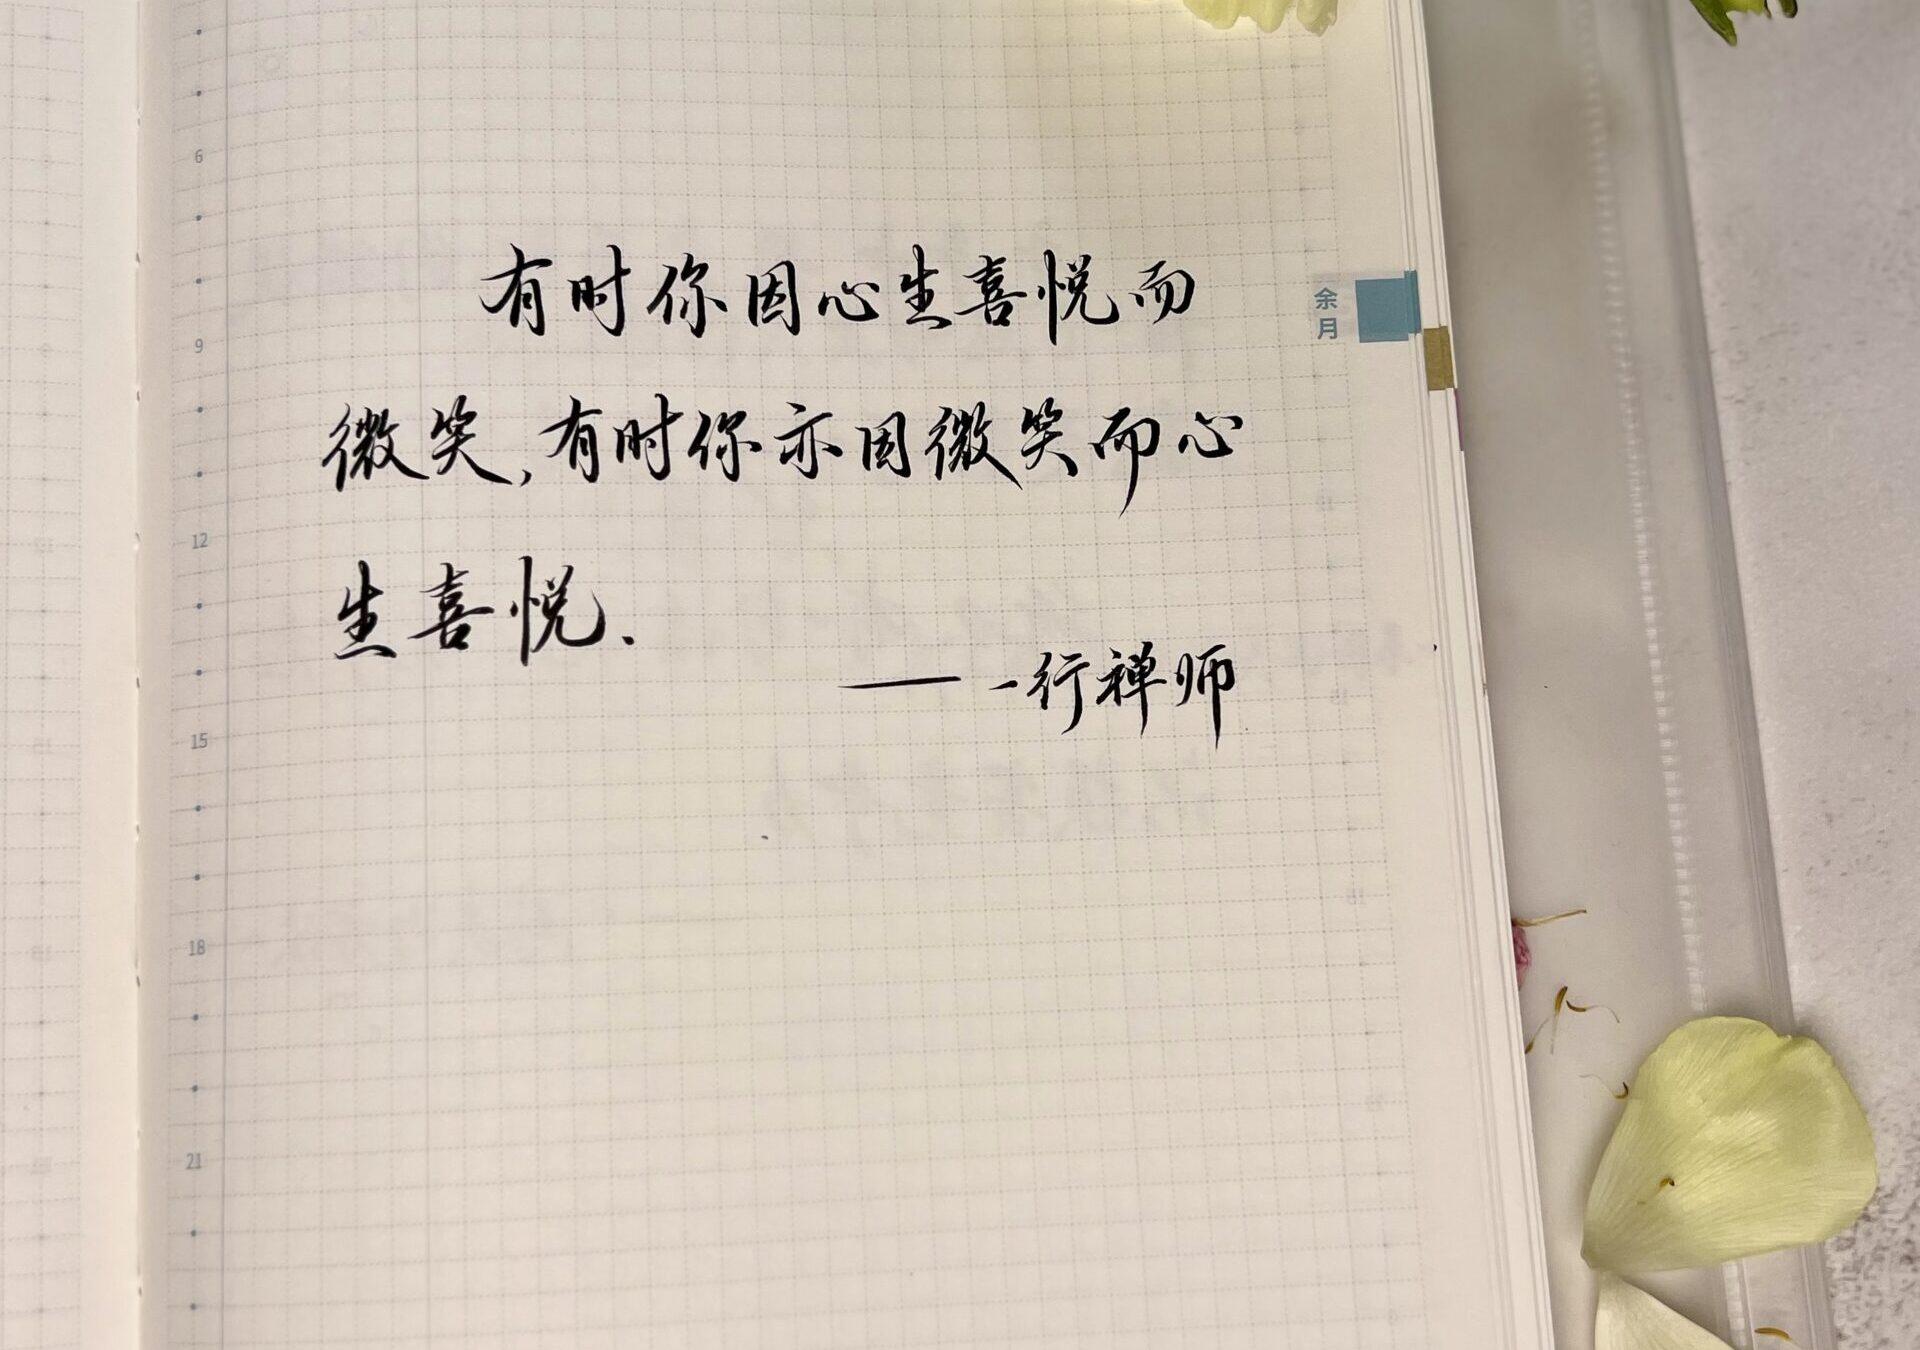 6
9
12
15
18
21
有时你因心生喜悦而
微笑,有时你亦因微笑而心
生喜悦.
—— 一行禅师
余月